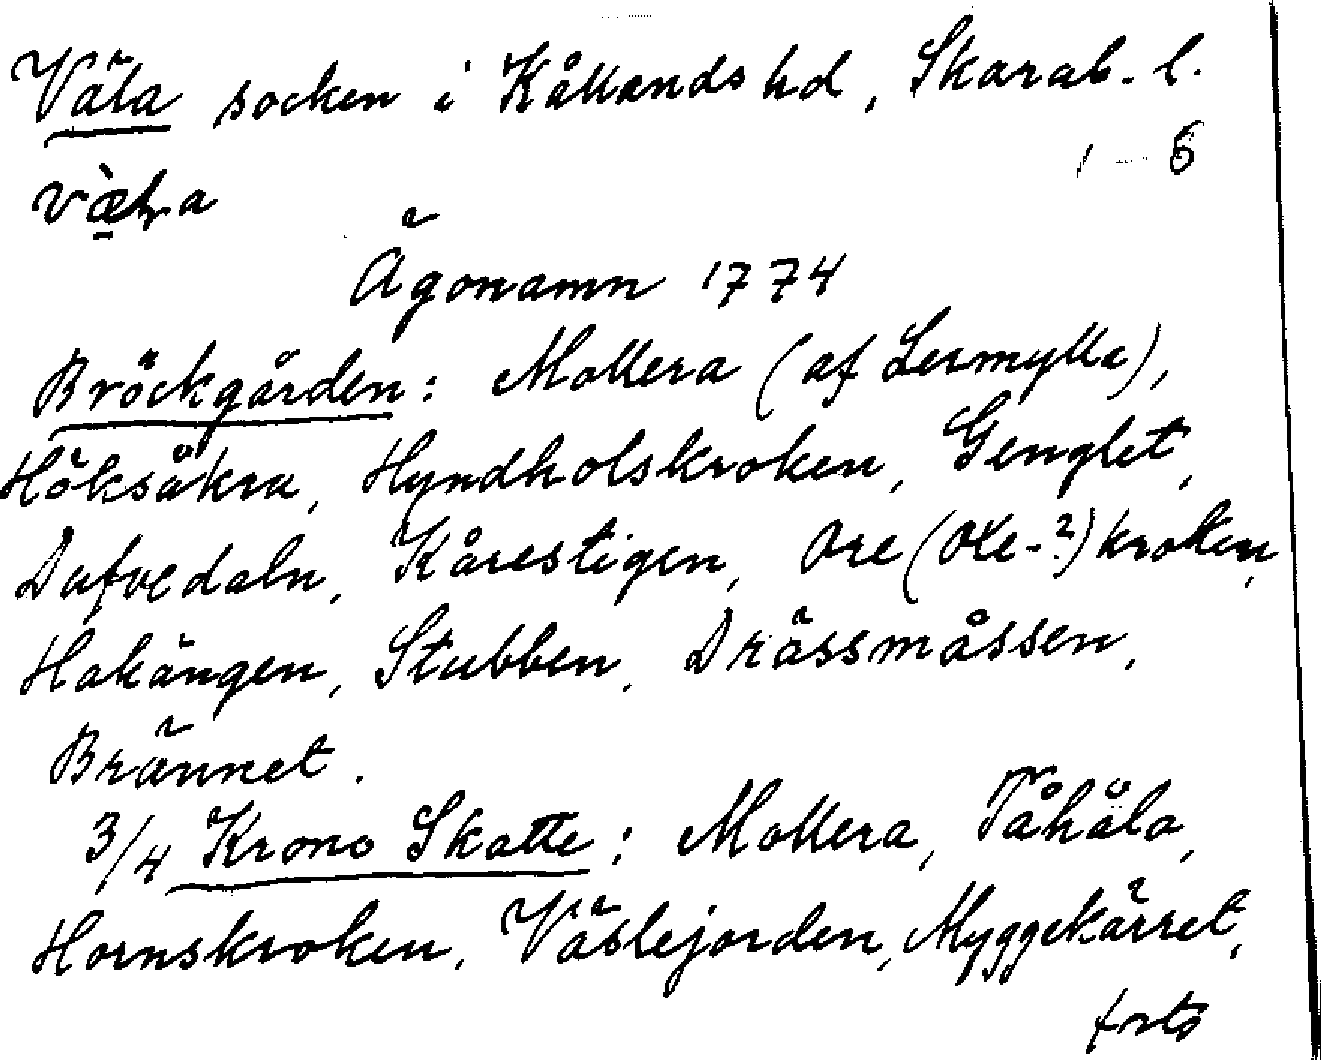 Väla socken i Kållands hd, Skarab. l.
1 – 6
Ägonamn 1774
Bröckgården: Mollera (af Lermylla),
Höksåkra, Hyndholskroken, Genglet,
Dufvedaln, Kårestigen, Ore (Oxe-?) kroken,
Hakängen, Stubben, Drässmåssen,
Brännet.
3/4 Krono Skatte: Mollera, Påhåla,
Hornskroken, Väslejorden, Myggekärret,
forts